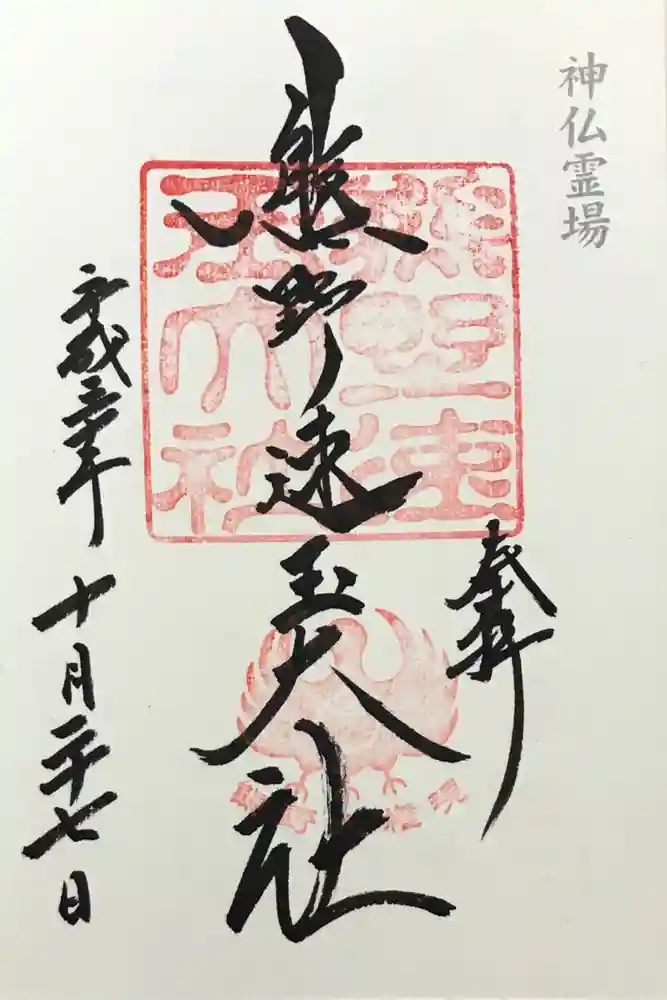 神仏霊場
奉拝
熊野速玉大社
熊野速
玉大社
平成三十年 十月二十七日